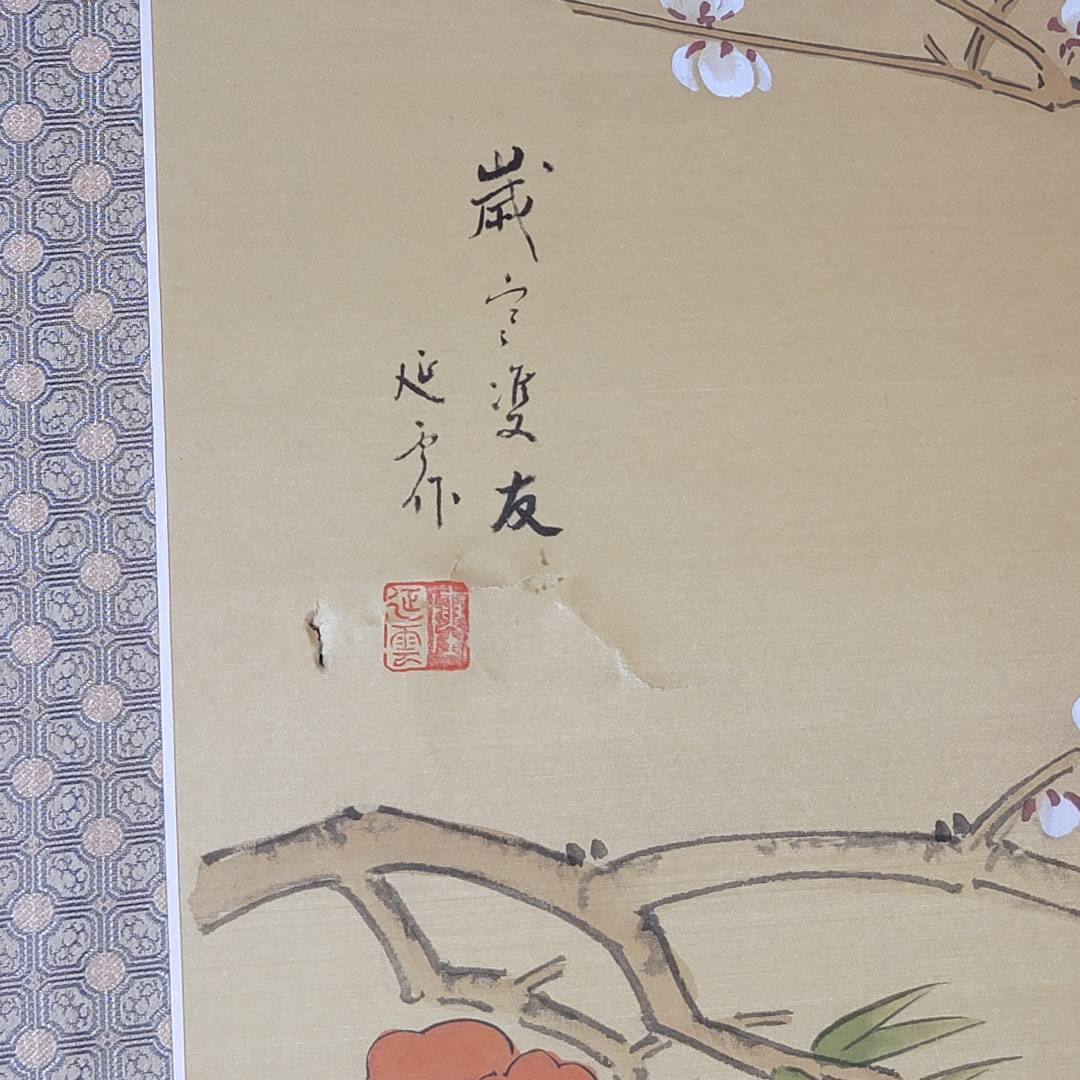 歲寒雙友
延雲作
延雲